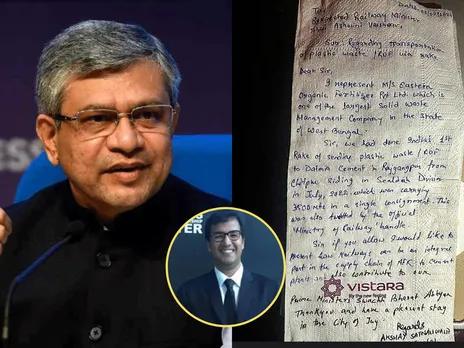 To
Respected Railway Minister
Shri Ashwini Vaishnaw
Sub: Regarding transportation
of plastic waste / RDF via rake
Dear Sir,
I represent M/s Eastern
Organic Fertilizer Pvt Ltd. which is
one of the largest Solid waste
Management Company in the State
of West Bengal.
Sir, we had done India's 1st
Rake of sending plastic waste / RDF
to Dalmia Cement in Rajgangpur from
Chitpur Siding in Sealdah Division
in July, 2022 which was carrying
in a single consignment. This
was also tweeted by the official
Ministry of Railway handle.
Sir if you allow I would like to
present how Railways can be an integral
part in the supply chain of AFR to Cement
also contribute to our
Prime Minister's Swachh Bharat Abhiyan
Thankyou and have a pleasant stay
in the City of Joy
Regards
AKSHAY SATNALIWALA
VISTARA
ER